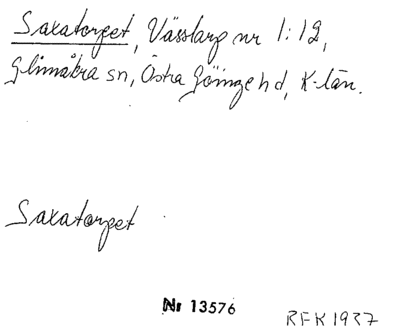 Saxatorpet, Vässlarp nr 1:12,
Glimåkra sn, Östra Göinge hd, K-län.
Saxatorpet
Nr 13576
RFK 1937